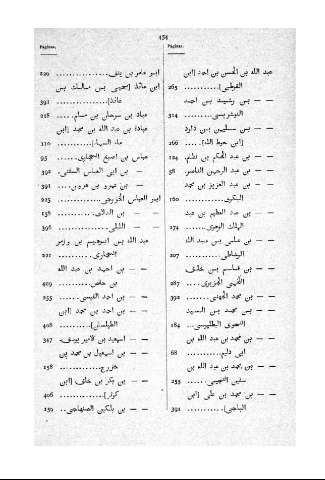 454
Páginas.
عبد الله بن الحسن بن احمد [ابن
القرطبي].......... 265
— — بن رشيد بن احمد
الونشريسي..... 314
— — بن سليمن بن داود
[ابن حوط الله].... 166
— — بن عبد الحكم بن نظم. 124
— — بن عبد الرحمن الناصر. 58
— — بن عبد العزيز بن محمد
البكري........ 160
— — بن عبد العظيم بن عبد
الملك 274
— — بن علي بن عبد الله
الرشاطي....... 207
— — بن قاسم بن خلف
اللخمي الحريري... 287
— — بن محمد 392
— — بن محمد بن السيد
النحوي البطليوسي... 184
— — بن محمد بن عبد الله بن
ابي دليم........ 68
— — بن محمد بن عبد الله بن
سفين التجيبي.... 255
— — بن محمد بن علي [ابن
الباجي]........ 391
Páginas.
ابو عامر بن 220
ابن عائذ [يحيى بن مالك بن
عائذ].......... 391
عباد بن سرحان بن مسلم.. 218
عبادة بن عبد الله بن محمد [ابن
ماء السماء]....... 110
عباس بن اصبغ الحجاري. 95
— بن ابي العباس 392
— بن 391
ابو العباس الجزيري.... 225
— — بن 138
— — 396
عبد الله بن ابراهيم بن وزمر
الحجاري....... 221
— — بن احمد بن عبد الله
بن حفص..... 409
— — بن احمد القيسي... 255
— — بن احمد بن محمد [ابن
الطيلسان]....... 408
— — بن اسعيد بن 347
— — بن اسمعيل بن محمد بن
خزرج......... 258
— — بن بكر بن خلف [ابن
406
— — بن بلكين الصنهاجي.. 259